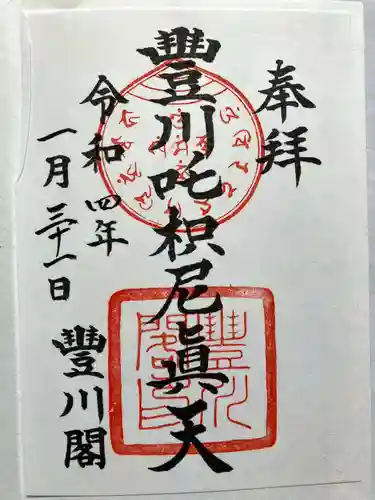 奉拝
豐川吒枳尼眞天
令和四年
一月三十一日
豐川閣
豐川閣印